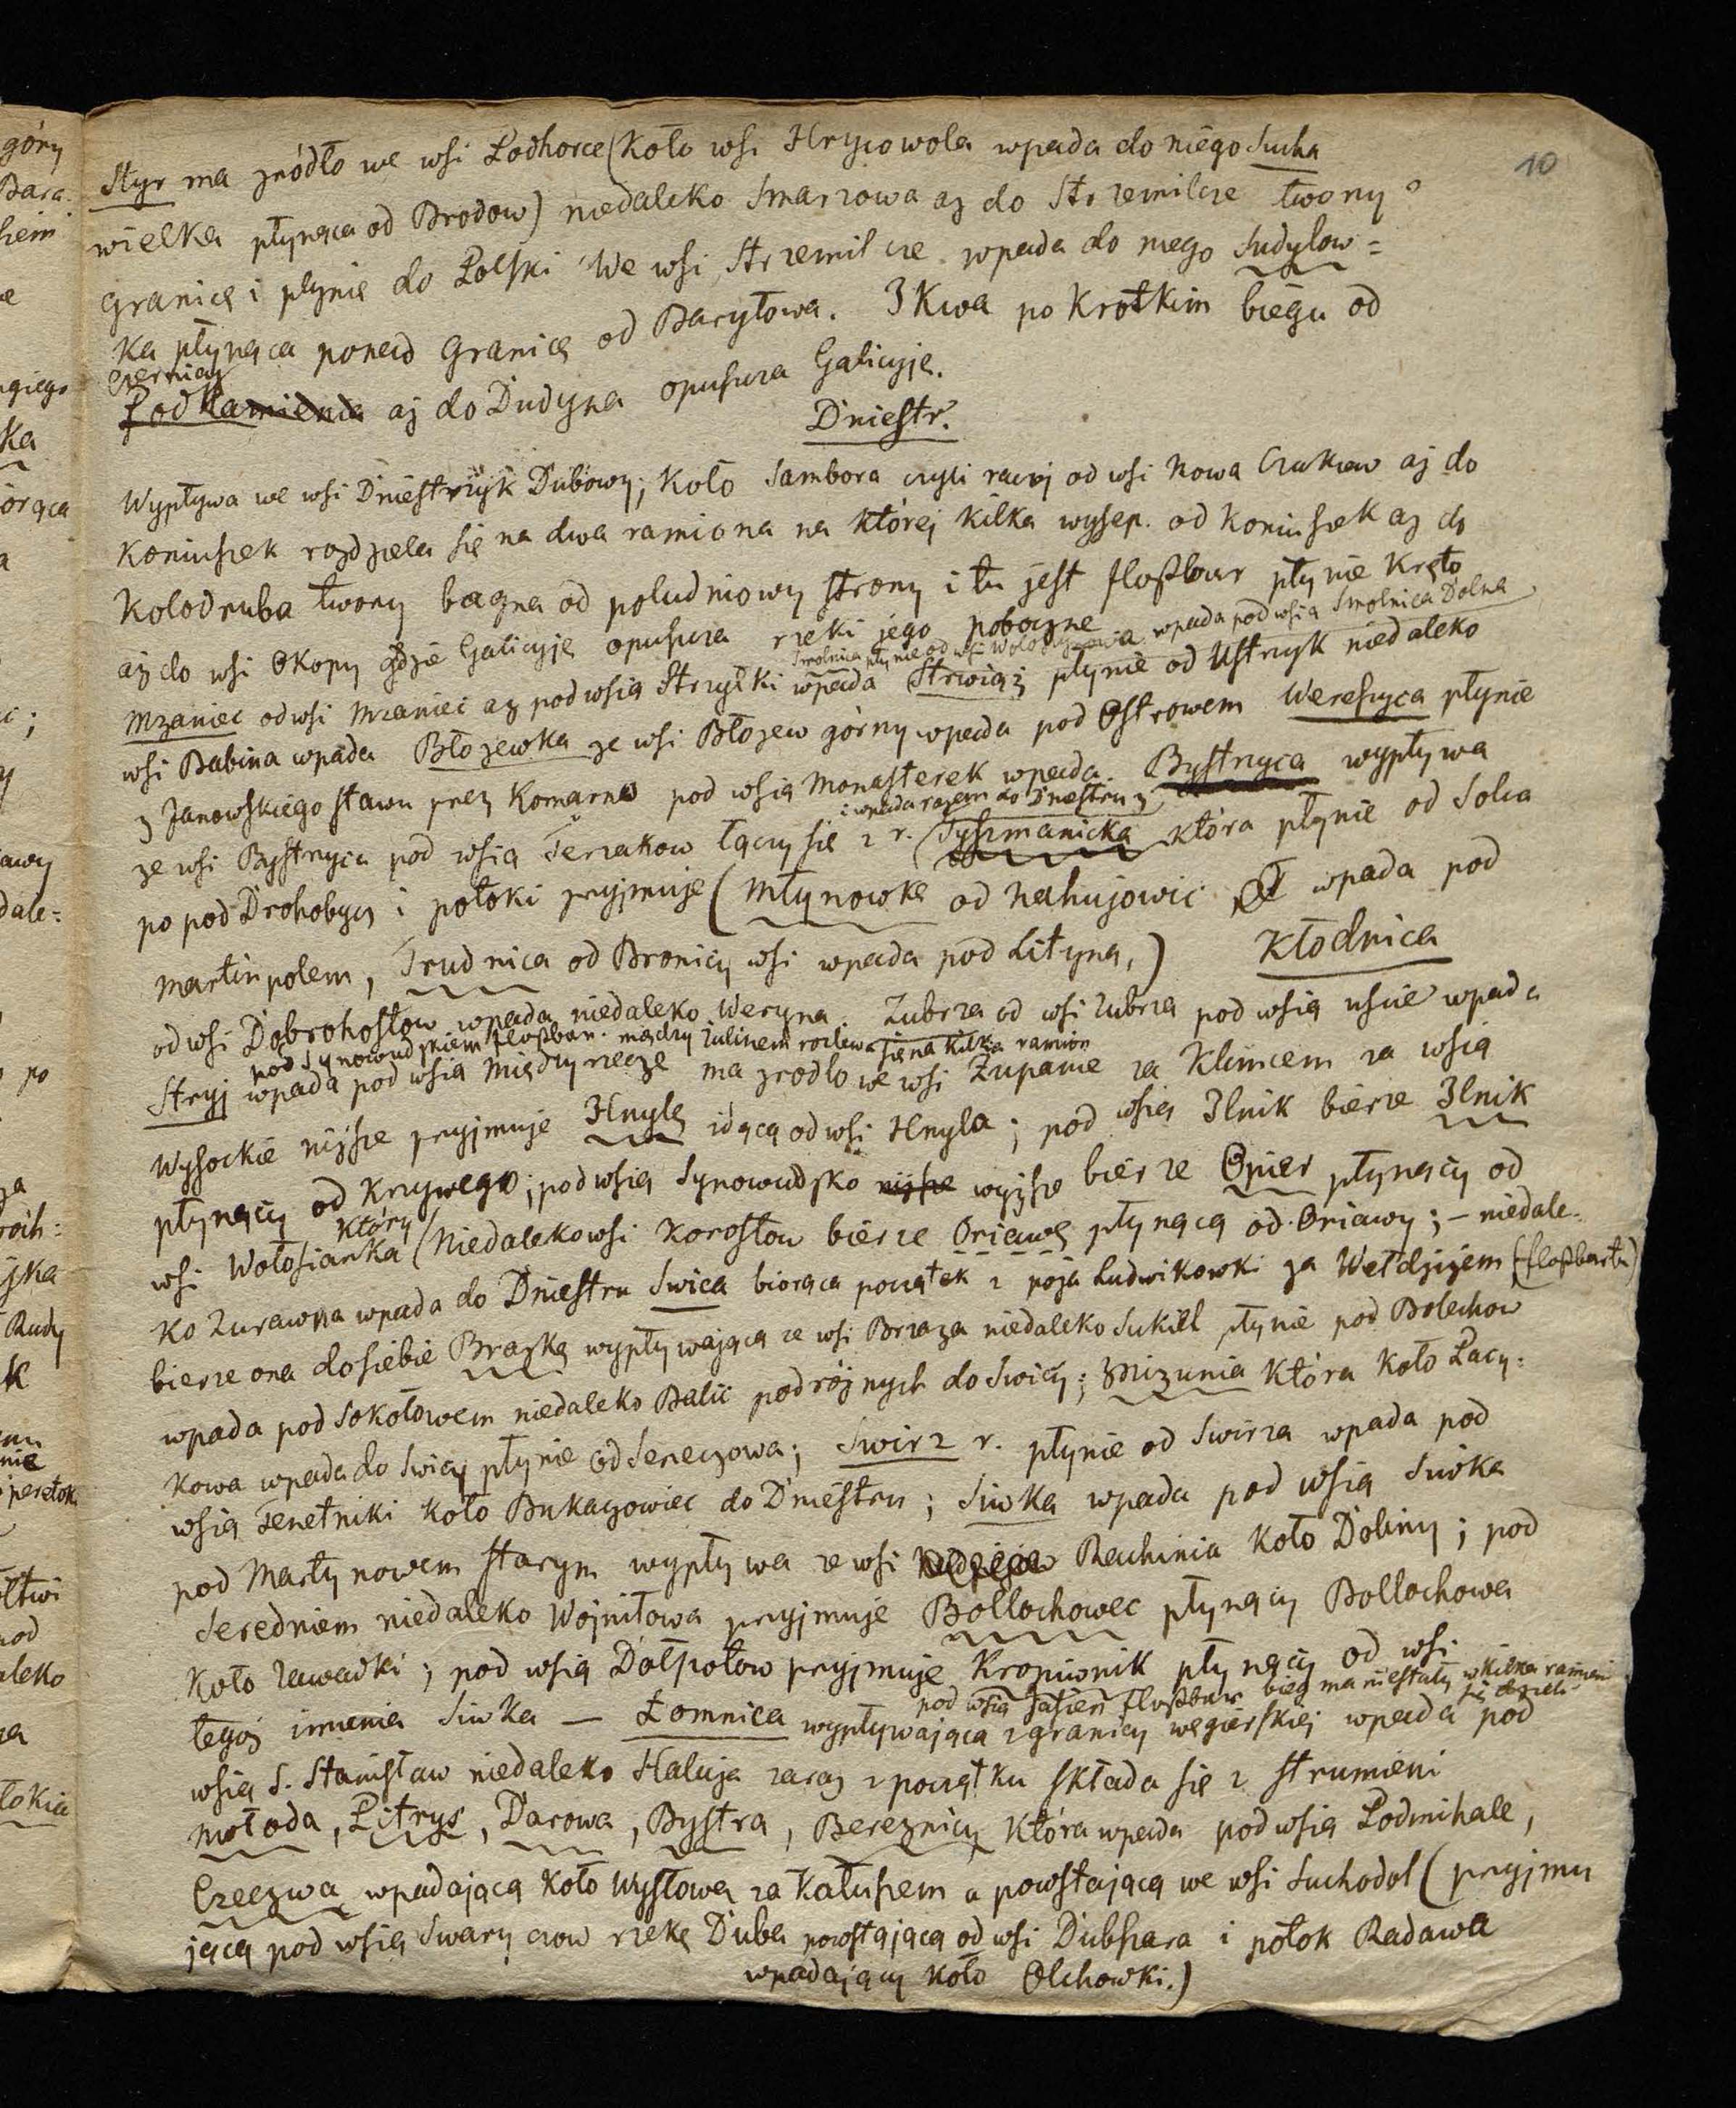 10
Styr ma zródło we wsi Podhorce (Koło wsi Hrycowola wpada do niego Sucha
wielka płynąca od Brodow) niedaleko Smarzowa aż do Strzemilcze tworzy
granicę i płynie do Polski We wsi Strzemilcze wpada do niego Sudylow=
ka płynąca ponad granicą od Baryłowa. Ikwa po krotkim biegu od
Czernicy
Podkamienia aż do Dudyna opuszcza Galicyję.
Dniestr.
Wypływa we wsi Dniestrzyk Dubowy; Koło Sambora czyli raczej od wsi Nowa Czukiew aż do
Koniuszek rozdziela się na dwa ramiona na której kilka wysep. od Koniuszek aż do
Kolodruba tworzy bagna od południowy strony i tu jest floßbar płynie kręto
aż do wsi Okopy gdzie Galicyję opuszcza rzeki jego poboczne
Smolnica płynie od wsi wpada pod wsią Smolnica Dolna
Mzaniec od wsi Mzaniec aż pod wsią Strzyłki wpada Strwiąż płynie od Ustrzyk niedaleko
wsi Babina wpada Błozewka ze wsi Błozew górny wpada pod Ostrowem Wereszyca płynie
z Janowskiego stawu przez Komarno pod wsią Monasterek wpada. Bystrzyca wypływa
i wpada razem do Dniestru z
ze wsi Bystrzyca pod wsią Terzakow łączy się z r. Tyszmanicka która płynie od Solca
po pod Drohobycz i potoki przyjmuje (Młynowka od Nahujowic wpada pod
Martinpolem, Trudnica od Bronicy wsi wpada pod Lityną,) Kłodnica
od wsi Dobrohostow wpada niedaleko Weryna. Zubrza od wsi Zubrza pod wsią uście wpada
pod Synowudzkiem floßbar. między Zulinem rozlewa się na kilka ramion
Stryj wpada pod wsią Międzyrzecze ma zrodło we wsi Zupanie za Klimcem za wsią
Wysockie niższe przyjmuje Hnyłę idącą od wsi Hnyla; pod wsią Ilnik bierze Ilnik
płynący od Krzywego; pod wsią Synowudzko niższe wyższe bierze Opier płynący od
który
wsi Wołosianka (Niedaleko wsi Korostow bierze Oriawę płynącą od Oriawy; – niedale-
ko Zurawna wpada do Dniestru Swica biorąca początek z poza Ludwikowki za Wełdzizem (floßbar tu)
bierze ona do siebie Brazkę wypływającą ze wsi Brzaza niedaleko Sukiel płynie pod Bolechow
wpada pod Sokołowem niedaleko Balic podróżnych do Swicy; Mizunia która koło Lacy:
kowa wpada do Swicy płynie od Seneczowa; Swirz r. płynie od Swirza wpada pod
wsią Tenetniki koło Bukaczowiec do Dniestru; Siwka wpada pod wsią Siwka
pod Martynowem starym wypływa ze wsi Rachinia koło Doliny; pod
Seredniem niedaleko Wojniłowa przyjmuje Bollochowec płynący Bollochowa
koło Zawadki; pod wsią Dołpotow przyjmuje Kropiwnik płynący od wsi
pod wsią Jasień floßbar bieg ma niestały w kilka ramieni
się dzieli
tegoż imienia Siwka — Łomnica wypływająca z granicy węgierskiej wpada pod
wsią S. Stanisław niedaleko Halicza zaraz z początku składa się z strumieni
Mołoda, Pitrys, Darowa, Bystra, Bereznicy która wpada pod wsią Podmihale,
Czeczwa wpadającą koło Wystowa za Kałuszem a powstającą we wsi Suchodol (przyjmu
jącą pod wsią Swaryczow rzekę Duba powstającą od wsi Dubszara i potok Radawa
wpadający koło Olchowki.)